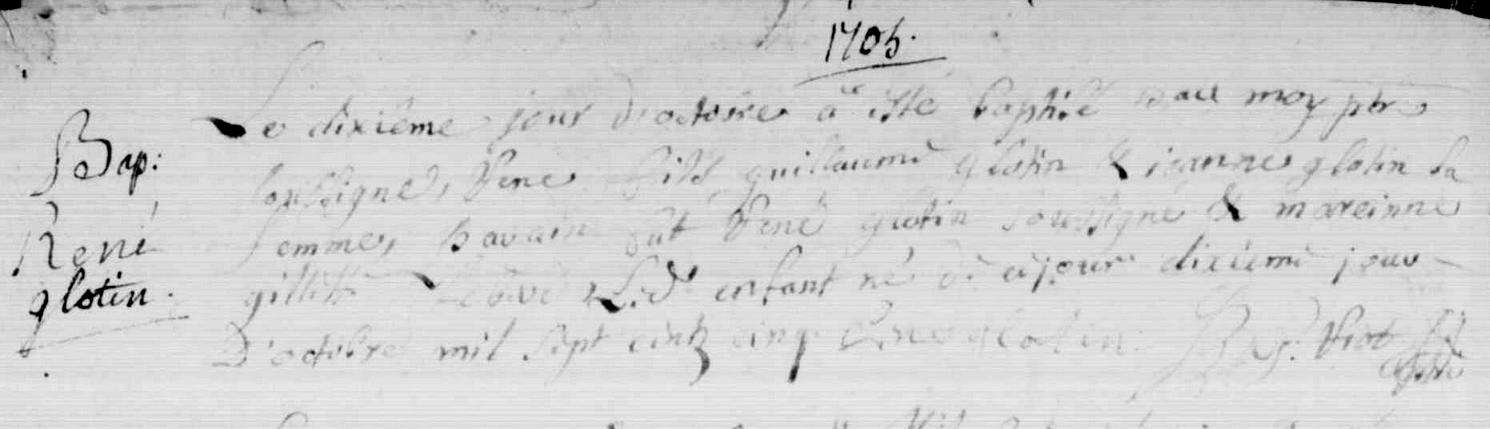 1705.
Bap:
René
glotin.
Le dixiéme jour d'octobre a esté baptisé par moy pbre
soussigné, René fils guillaume glotin & jeanne glotin sa
femme, Parain fut René glotin soussigné & mareinne
gillette Led enfant né de ce jour dixiéme jour
D'octobre mil sept centz cinq René glotin